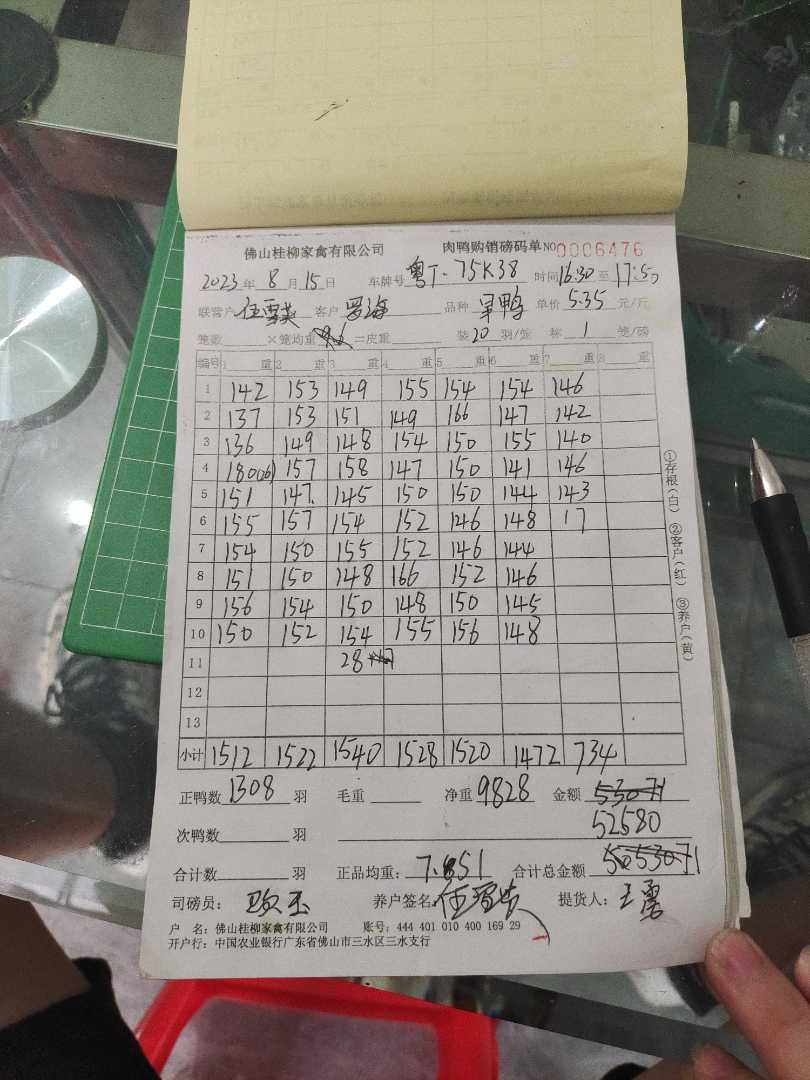 佛山桂柳家禽有限公司 肉鸭购销磅码单 NO 0006476
2023年 8月15日 车牌号 粤T-75K38 时间16:30至17:50
联营户 任雪英 客户 罗海 品种 旱鸭 单价 5.35 元/斤
笼数 ×笼均重 =皮重 装 20 羽/笼 称 1 笼/磅
编号 1 重 2 重 3 重 4 重 5 重 6 重 7 重 8 重
1 142 153 149 155 154 154 146
2 137 153 151 149 166 147 142
3 136 149 148 154 150 155 140
4 180(26) 157 158 147 150 141 146
5 151 147. 145 150 150 144 143
6 155 157 154 152 146 148 17
7 154 150 155 152 146 144
8 151 150 148 166 152 146
9 156 154 150 148 150 145
10 150 152 154 155 156 148
11 28
12
13
小计 1512 1522 1540 1528 1520 1472 734
正鸭数 1308 羽 毛重 净重 9828 金额 53071
52580
次鸭数 羽
合计数 羽 正品均重: 7.51 合计总金额 5053071
司磅员: 养户签名: 提货人: 王勇
户 名: 佛山桂柳家禽有限公司 账号: 444 401 010 400 169 29
开户行: 中国农业银行广东省佛山市三水区三水支行
①存根(白) ②客户(红) ③养户(黄)